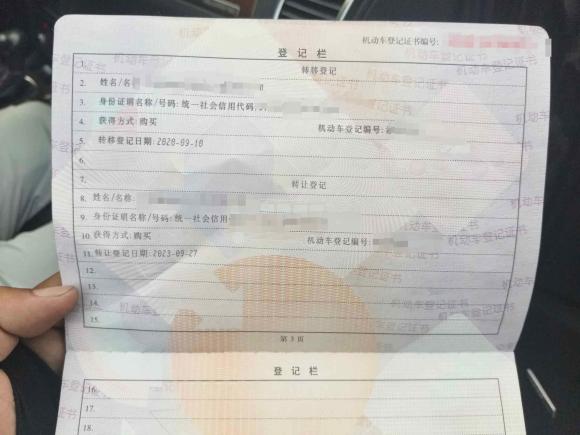 机动车登记证书编号:
登记栏
1. 转移登记
2. 姓名/名
3. 身份证明名称/号码:统一社会信用代码
4. 获得方式:购买 机动车登记编号:
5. 转移登记日期:2020-09-10
6.
7. 转让登记
8. 姓名/名称:
9. 身份证明名称/号码:统一社会信用
10. 获得方式:购买 机动车登记编号:
11. 转让登记日期:2023-09-27
12.
13.
14.
15.
第3页
登记栏
16.
17.
18.